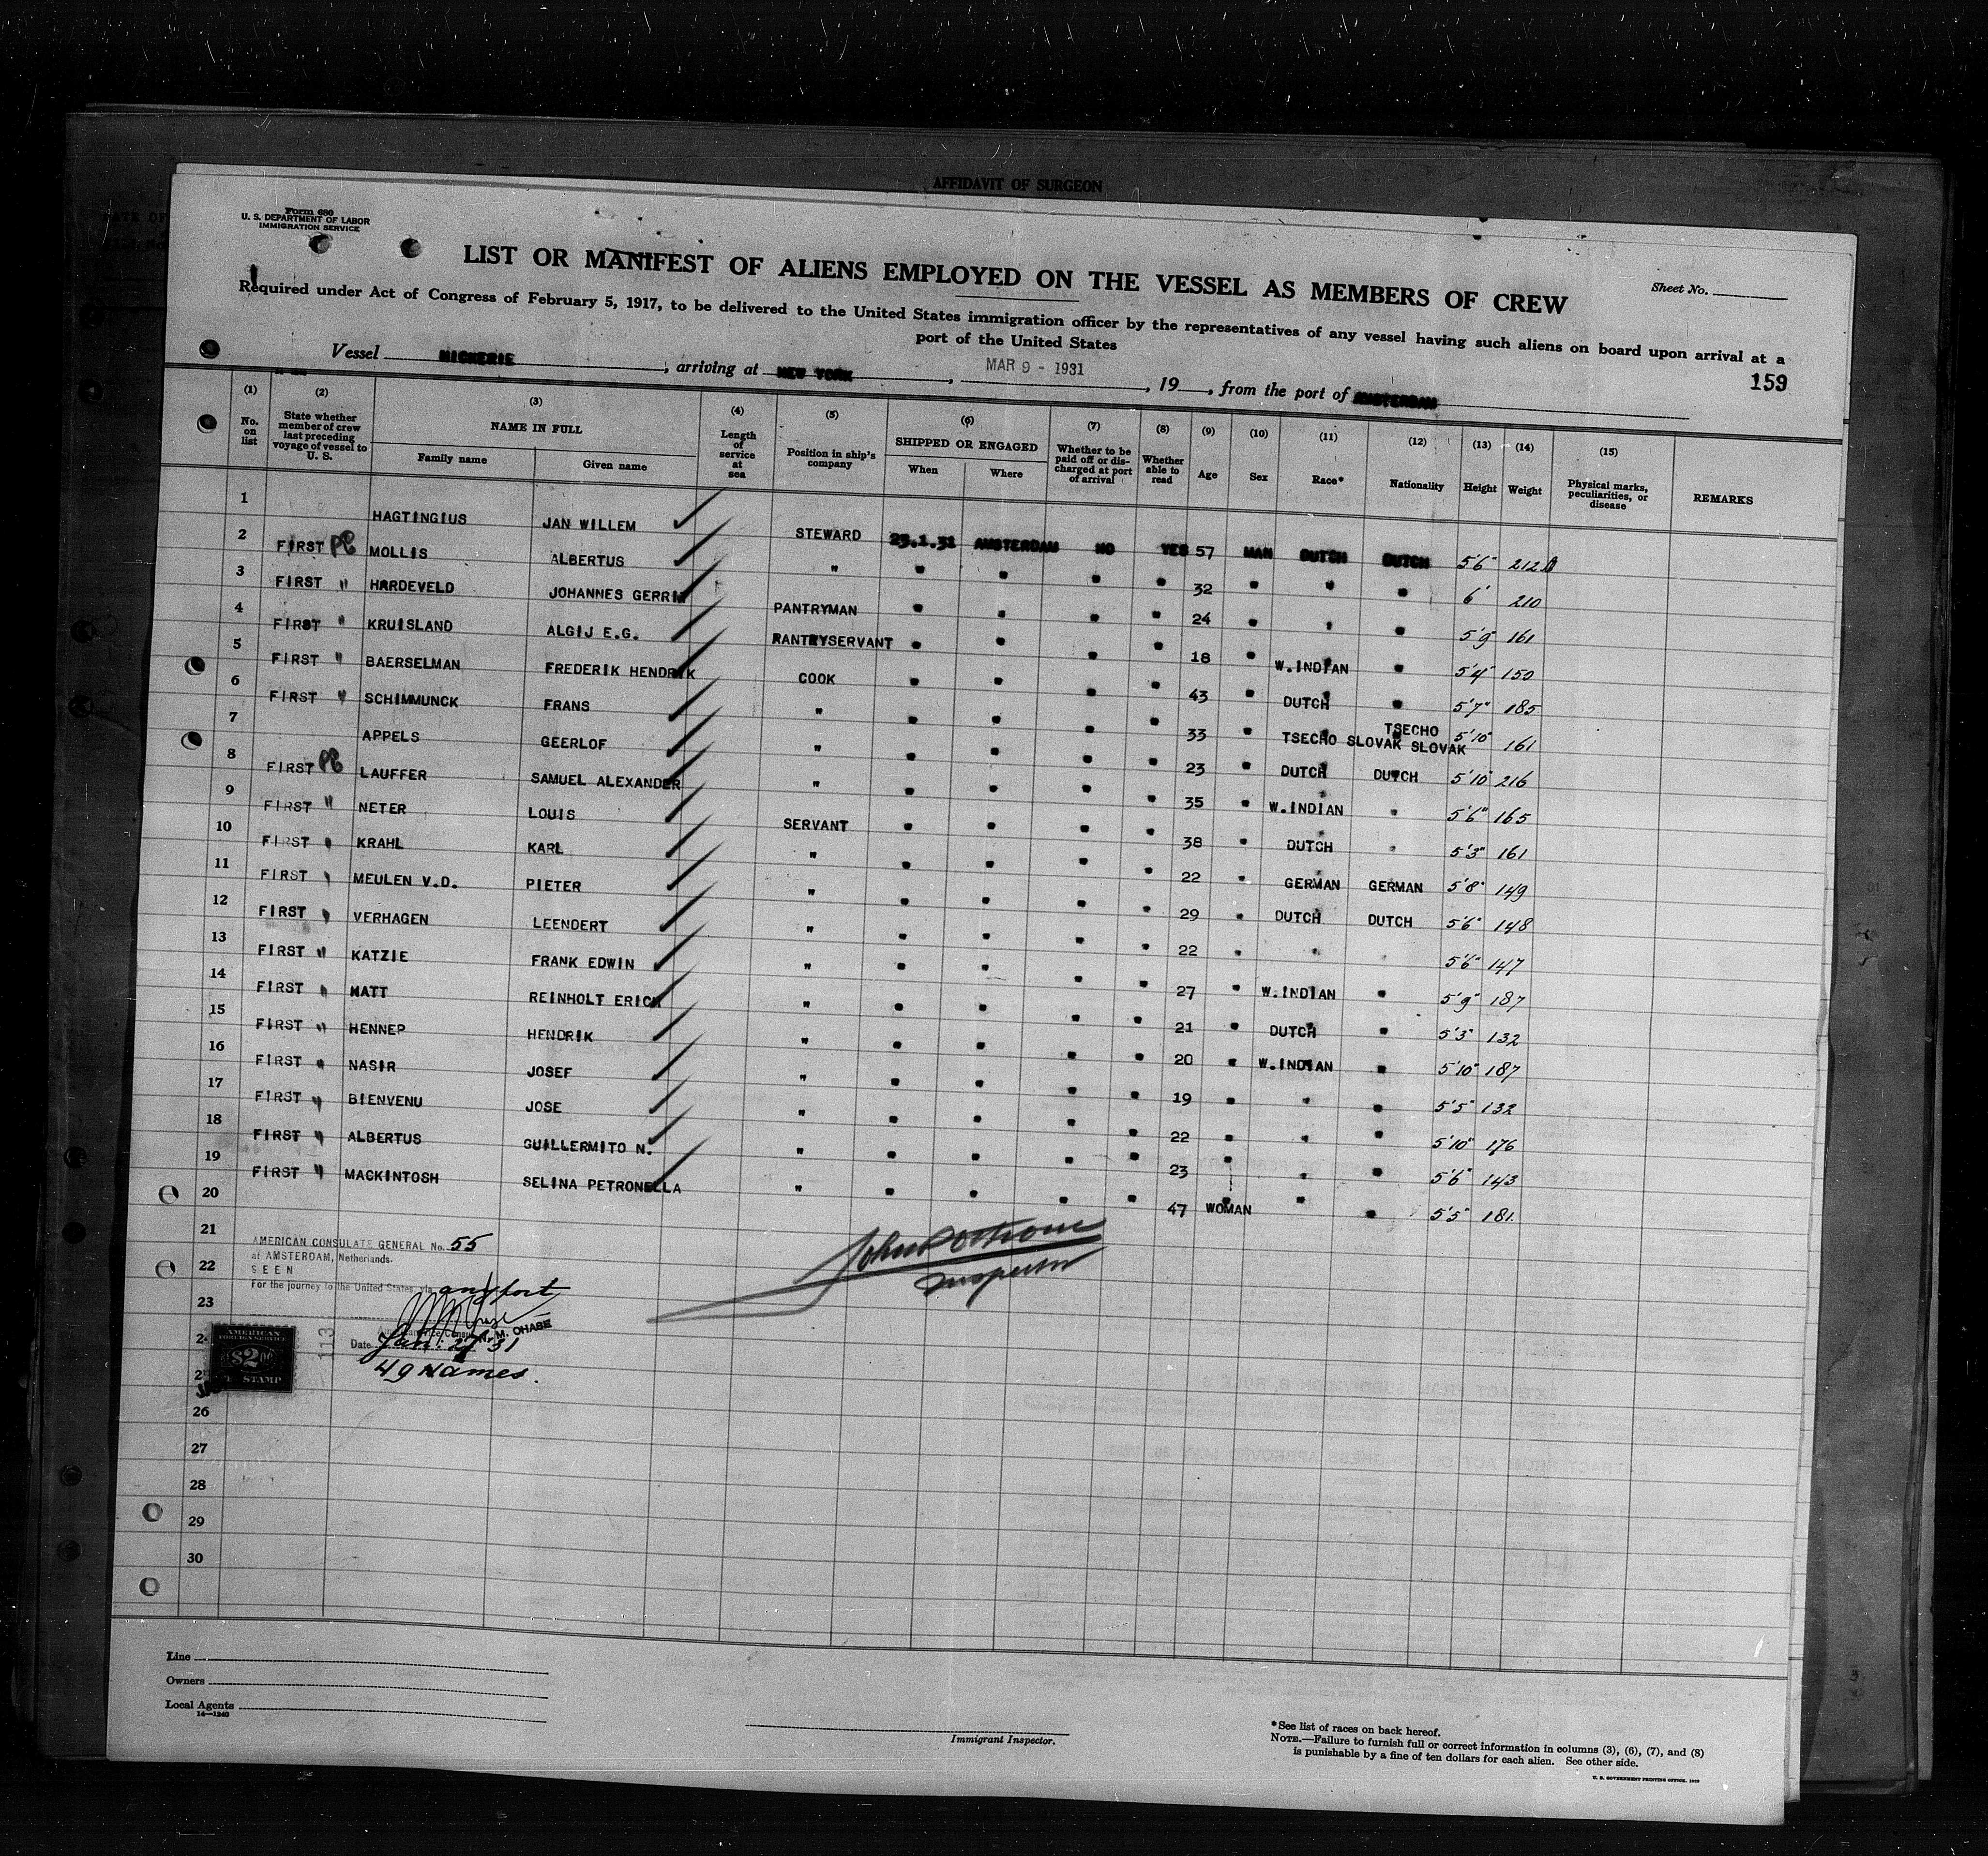 AFFIDAVIT OF SURGEON
Form 680
U. S. DEPARTMENT OF LABOR
IMMIGRATION SERVICE
LIST OR MANIFEST OF ALIENS EMPLOYED ON THE VESSEL AS MEMBERS OF CREW
Sheet No.
Required under Act of Congress of February 5, 1917, to be delivered to the United States immigration officer by the representatives of any vessel having such aliens on board upon arrival at a
port of the United States
Vessel NICKERIE, arriving at NEW YORK, MAR 9 - 1931, 19 , from the port of AMSTERDAM
159
(1) No. on list (2) State whether member of crew last preceding voyage of vessel to U. S. (3) NAME IN FULL Family name Given name (4) Length of service at sea (5) Position in ship's company (6) SHIPPED OR ENGAGED When Where (7) Whether to be paid off or discharged at port of arrival (8) Whether able to read (9) Age (10) Sex (11) Race* (12) Nationality (13) Height (14) Weight (15) Physical marks, peculiarities, or disease REMARKS
1 HAGTINGIUS JAN WILLEM STEWARD 23.1.31 AMSTERDAM NO YES 57 MAN DUTCH DUTCH 5'6" 212
2 FIRST PB MOLLIS ALBERTUS " " " " " 32 " " " 6' 210
3 FIRST " HARDEVELD JOHANNES GERRIT PANTRYMAN " " " " 24 " " " 5'9" 161
4 FIRST " KRUISLAND ALGIJ E.G. PANTRYSERVANT " " " " 18 " W.INDIAN " 5'4" 150
5 FIRST " BAERSELMAN FREDERIK HENDRIK COOK " " " " 43 " DUTCH " 5'7" 185
6 FIRST " SCHIMMUNCK FRANS " " " " " 33 " TSECHO SLOVAK TSECHO SLOVAK 5'10" 161
7 APPELS GEERLOF " " " " " 23 " DUTCH DUTCH 5'10" 216
8 FIRST PB LAUFFER SAMUEL ALEXANDER " " " " " 35 " W.INDIAN " 5'6" 165
9 FIRST " NETER LOUIS SERVANT " " " " 38 " DUTCH " 5'3" 161
10 FIRST " KRAHL KARL " " " " " 22 " GERMAN GERMAN 5'8" 149
11 FIRST " MEULEN V.D. PIETER " " " " " 29 " DUTCH DUTCH 5'6" 148
12 FIRST " VERHAGEN LEENDERT " " " " " 22 " " " 5'6" 147
13 FIRST " KATZIE FRANK EDWIN " " " " " 27 " W.INDIAN " 5'9" 187
14 FIRST " MATT REINHOLT ERICH " " " " " 21 " DUTCH " 5'3" 132
15 FIRST " HENNEP HENDRIK " " " " " 20 " W.INDIAN " 5'10" 187
16 FIRST " NASIR JOSEF " " " " " 19 " " " 5'5" 132
17 FIRST " BIENVENU JOSE " " " " " 22 " " " 5'10" 176
18 FIRST " ALBERTUS GUILLERMITO N. " " " " " 23 " " " 5'6" 143
19 FIRST " MACKINTOSH SELINA PETRONELLA " " " " " 47 WOMAN " " 5'5" 181
20
21
22
23
26
27
28
29
30
AMERICAN CONSULATE GENERAL No. 55
at AMSTERDAM, Netherlands.
SEEN
For the journey to the United States, via any port
N. M. CHASE
Date Jan: 27 31
49 Names.
113
AMERICAN
FOREIGN SERVICE
$2.00
FEE STAMP
Inspector
Line
Owners
Local Agents
14—1240
Immigrant Inspector.
*See list of races on back hereof.
NOTE.—Failure to furnish full or correct information in columns (3), (6), (7), and (8)
is punishable by a fine of ten dollars for each alien. See other side.
U. S. GOVERNMENT PRINTING OFFICE